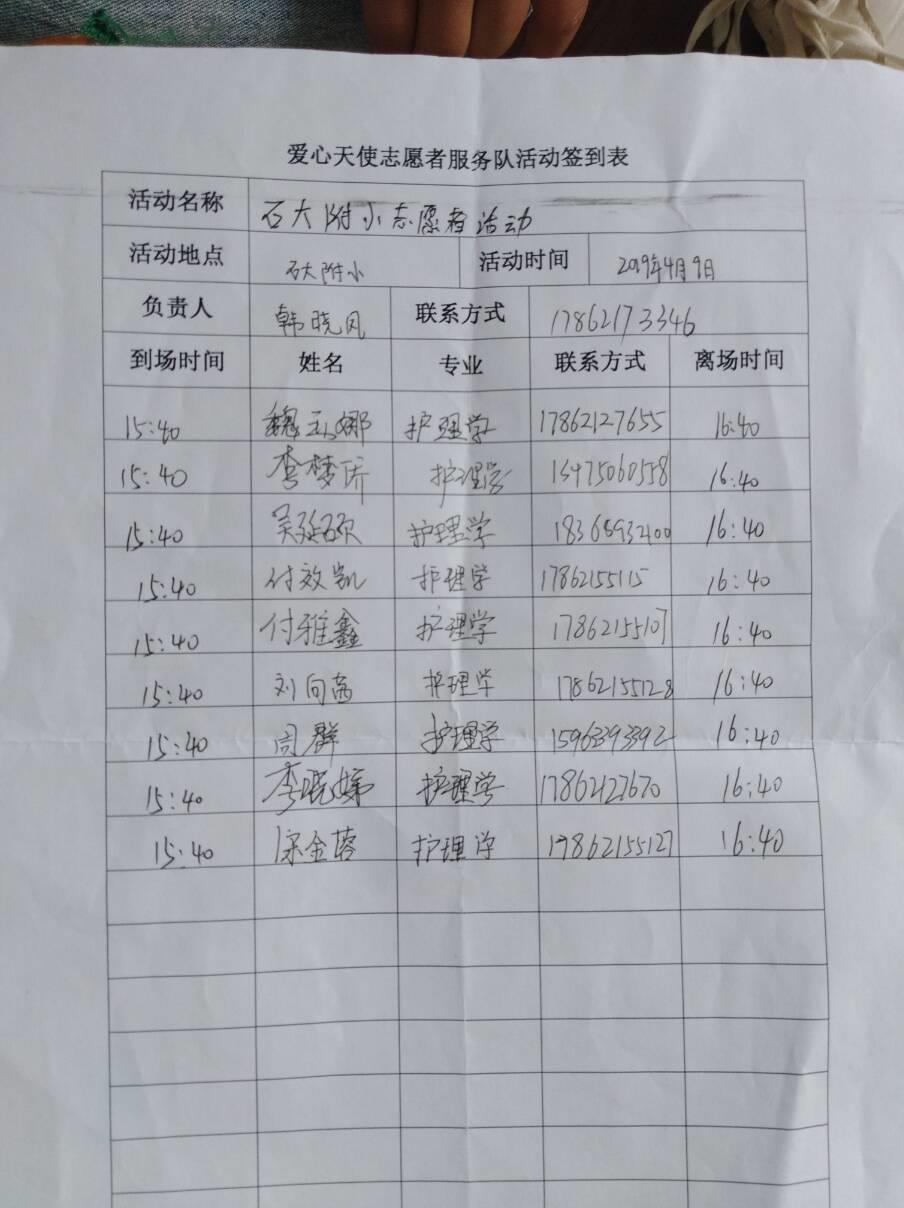 爱心天使志愿者服务队活动签到表
活动名称 石大附小志愿者活动
活动地点 石大附小 活动时间 2019年4月9日
负责人 韩晓凤 联系方式 17862173346
到场时间 姓名 专业 联系方式 离场时间
15:40 魏玉娜 护理学 17862127655 16:40
15:40 李梦娇 护理学 16:40
15:40 吴延硕 护理学 16:40
15:40 付效凯 护理学 17862155115 16:40
15:40 付雅鑫 护理学 17862155107 16:40
15:40 刘向茜 护理学 17862155128 16:40
15:40 周群 护理学 15963393392 16:40
15:40 李晓娣 护理学 16:40
15:40 金蓉 护理学 17862155127 16:40